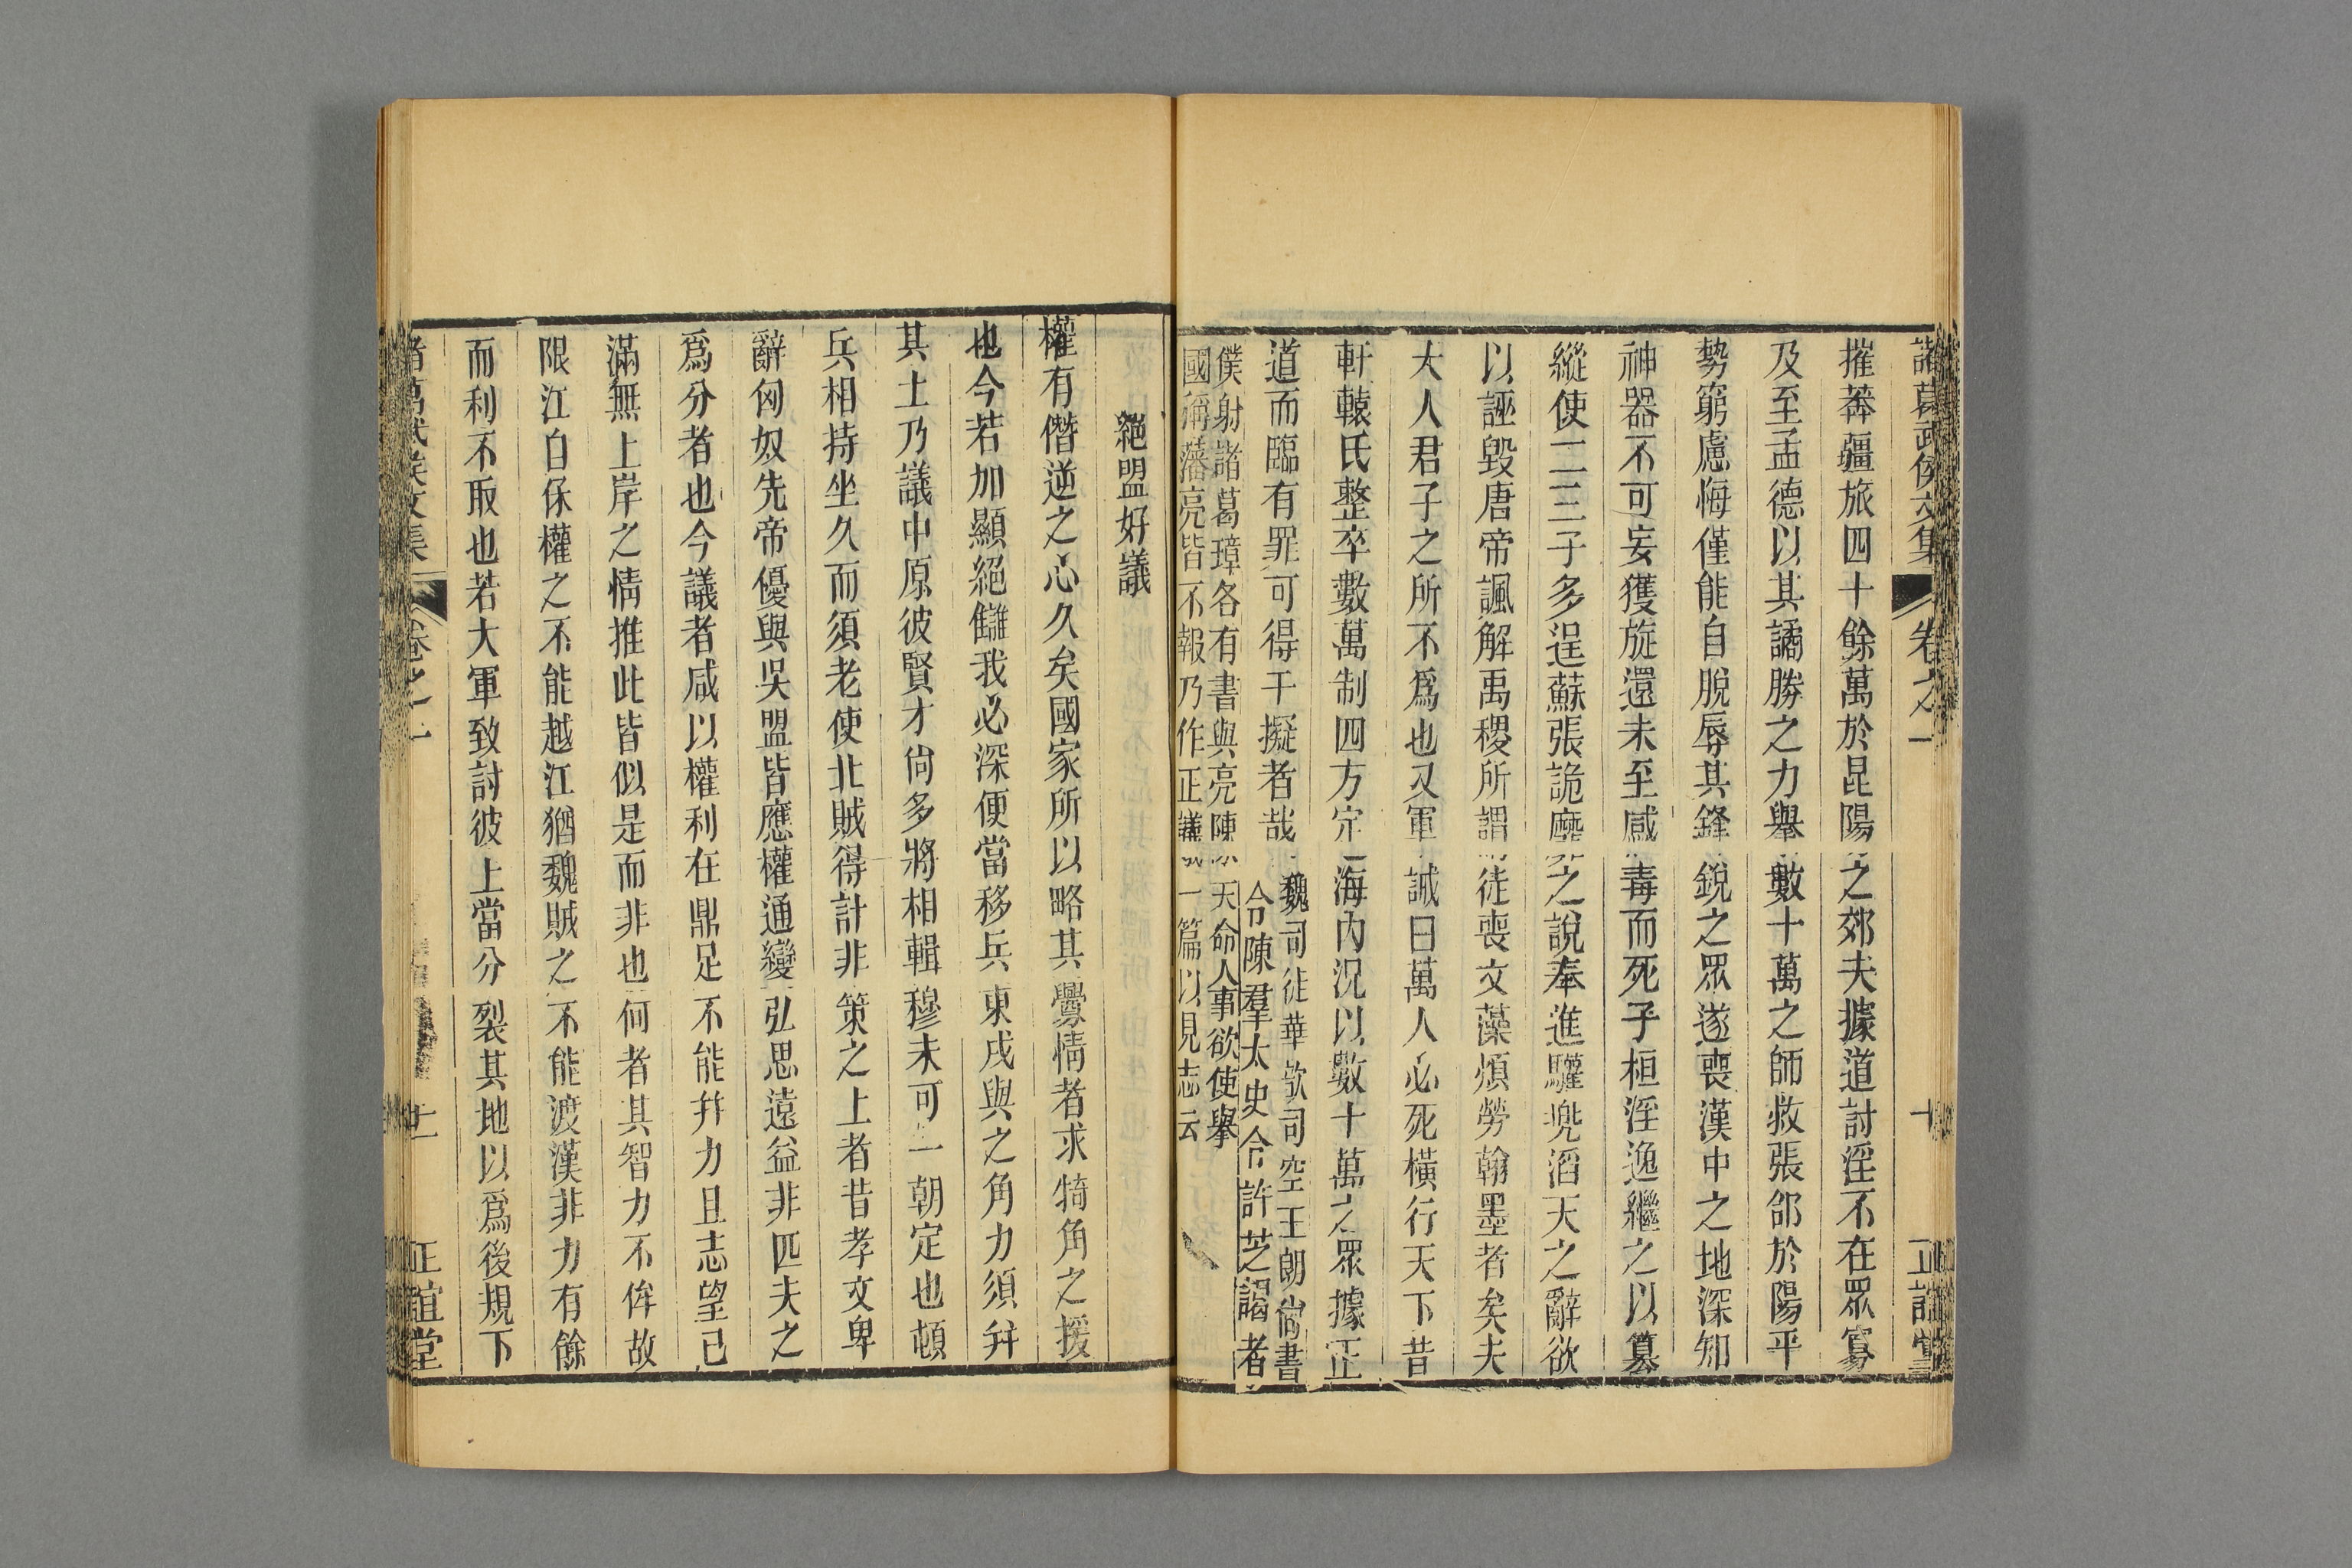 諸葛武侯文集 卷之一 十 正誼堂
摧莽彊旅四十餘萬於昆陽之郊夫據道討淫不在眾寡
及至孟德以其譎勝之力舉數十萬之師救張郃於陽平
勢窮慮悔僅能自脫辱其鋒銳之眾遂喪漢中之地深知
神器不可妄獲旋還未至感毒而死子桓淫逸繼之以篡
縱使二三子多逞蘇張詭靡之說奉進驩兜滔天之辭欲
以誣毀唐帝諷解禹稷所謂徒喪文藻煩勞翰墨者矣夫
大人君子之所不爲也又軍誡曰萬人必死橫行天下昔
軒轅氏整卒數萬制四方定海內況以數十萬之眾據正
道而臨有罪可得干擬者哉
魏司徒華歆司空王朗尙書
令陳羣太史令許芝謁者
僕射諸葛璋各有書與亮陳天命人事欲使舉
國稱藩亮皆不報乃作正議一篇以見志云
絕盟好議
權有僭逆之心久矣國家所以略其釁情者求犄角之援
也今若加顯絕讎我必深便當移兵東戍與之角力須幷
其土乃議中原彼賢才尙多將相輯穆未可一朝定也頓
兵相持坐久而須老使北賊得計非策之上者昔孝文卑
辭匈奴先帝優與吳盟皆應權通變弘思遠益非匹夫之
爲分者也今議者咸以權利在鼎足不能幷力且志望已
滿無上岸之情推此皆似是而非也何者其智力不侔故
限江自保權之不能越江猶魏賊之不能渡漢非力有餘
而利不取也若大軍致討彼上當分裂其地以爲後規下
諸葛武侯文集 卷之一 十一 正誼堂